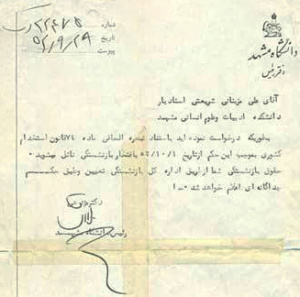 دانشگاه مشهد
دفتر رئیس
شماره ۲۲۴۷۵
تاریخ ۵۳/۹/۲۹
پیوست
آقای علی مزینانی شریعتی استادیار
دانشکده ادبیات وعلوم انسانی مشهد
بطوریکه درخواست نموده اید باستناد تبصره الحاقی ماده ۷۴ قانون استخدام
کشوری بموجب این حکم ازتاریخ ۵۳/۱۰/۱ بافتخار بازنشستگی نائل میشوید
حقوق بازنشستگی شما ازطریق اداره کل بازنشستگی تعیین وطبق حکم
جداگانه ای اعلام خواهد شد
دکتر
رئیس دانشگاه مشهد